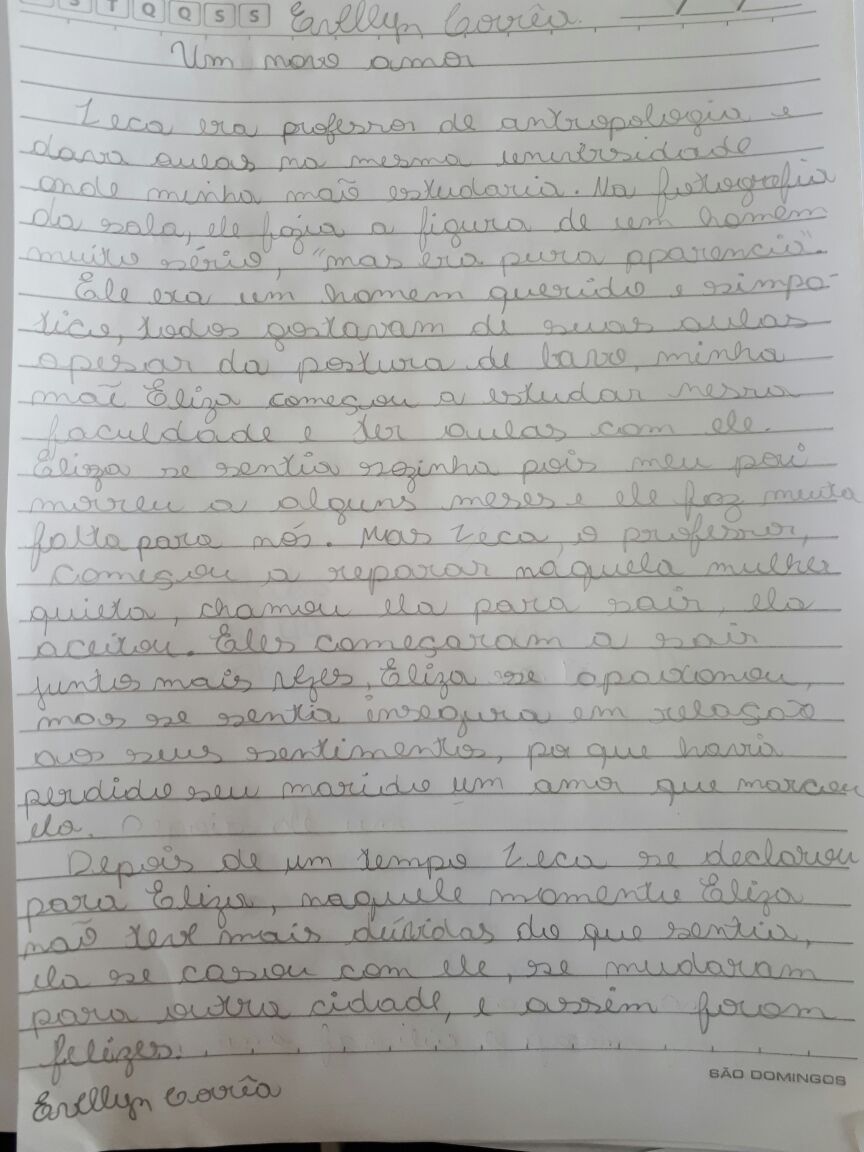 S T Q Q S S Evellyn Corrêa.
Um novo amor
Zeca era professor de antropologia e
dava aulas na mesma universidade
onde minha maẽ estudaria. Na fotografia
da sala, ele fazia a figura de um homem
muito sério, "mas era pura aparencia".
Ele era um homem querido e simpa-
tico, todos gostavam de suas aulas
apesar da postura de bavo, minha
maẽ Eliza começou a estudar nessa
faculdade e ter aulas com ele.
Eliza se sentia sozinha pois meu pai
morreu a alguns meses e ele faz muita
falta para nós. Mas Zeca, o professor,
começou a reparar naquela mulher
quieta, chamou ela para sair, ela
aceitou. Eles começaram a sair
juntos mais vezes, Eliza se apaixonou,
mas se sentia insegura em relação
aos seus sentimentos, por que havia
perdido seu marido um amor que marcou
ela.
Depois de um tempo Zeca se declarou
para Eliza, naquele momento Eliza
não teve mais dúvidas do que sentia,
ela se casou com ele, se mudaram
para outra cidade, e assim foram
felizes.
SÃO DOMINGOS
Evellyn Corrêa